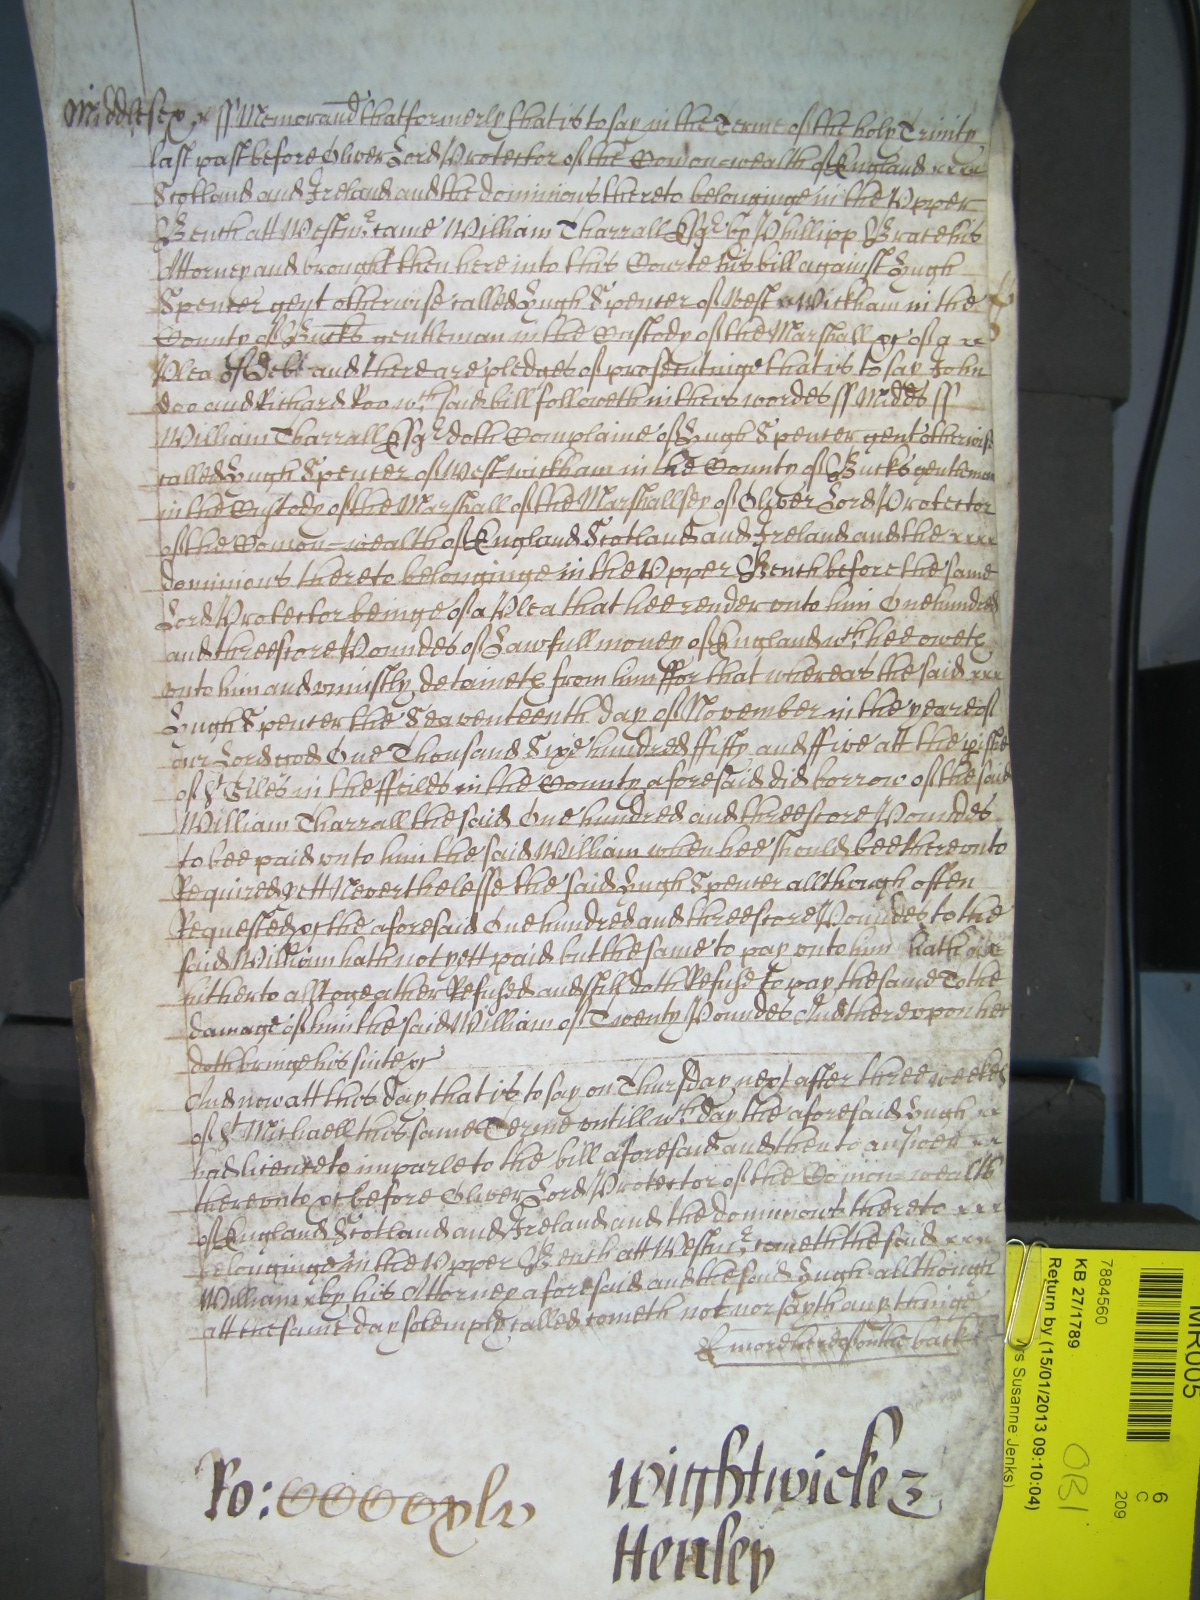 Middlesex ss Memorand that formerly that is to say in the Terme of the holy Trinity
last past before Oliver Lord Protector of the Comon-wealth of England
Scotland and Ireland and the dominions thereto belonginge in the Upper
Bench att Westmr came William Tharrall Esqr by Phillipp Grace his
Attorney and brought then here into this Courte his bill against Hugh
Spencer gent otherwise called Hugh Spencer of West Wickham in the
County of Bucks gentleman in the Custody of the Marshall &c of a
Plea of Debt and there are pledges of prosecutinge that is to say John
Doo and Richard Roo wch said bill followeth in theis wordes ss Midds ss
William Tharrall Esqr doth Complaine of Hugh Spencer gent otherwise
called Hugh Spencer of West wickham in the County of Bucks gentleman
in the Custody of the Marshall of the Marshallsey of Oliver Lord Protector
of the Comon-wealth of England Scotland and Ireland and the
dominions thereto belonginge in the Upper Bench before the same
Lord Protector beinge of a Plea that hee render unto him One hundred
and threescore Poundes of Lawfull money of England wch hee oweth
unto him and uniustly detaineth from him ffor that whereas the said
Hugh Spencer the Seaventeenth day of November in the yeare of
our Lord god One Thousand Sixe hundred ffifty and ffive att the pishe
of St Giles in the ffeilds in the County aforesaid did borrow of the said
William Tharrall the said One hundred and threescore Poundes
to bee paid unto him the said William when hee should bee thereunto
Required yett Neverthelesse the said Hugh Spencer allthough often
Requested &c the aforesaid One hundred and threescore Poundes to the
said William hath not yett paid but the same to pay unto him hath
hitherto alltogeather Refused and still doth Refuse to pay the same To the
damage of him the said William of Twenty Poundes And thereupon hee
doth bringe his suite &c
And now att this day that is to say on Thursday next after three weekes
of St Michaell this same Terme untill wch day the aforesaid Hugh
had licence to imparle to the bill aforesaid and then to answer
thereunto &c before Oliver Lord Protector of the Comon-wealth
of England Scotland and Ireland and the dominions thereto
belonginge in the Upper Bench att Westmr cometh the said
William by his Attorney aforesaid and the said Hugh allthough
att the same day solemply called cometh not nor sayth any thinge
more hereof on the backe
Ro:
Wightwicke
Henley
MR005
6
C
209
7884560
KB 27/1789
Return by (15/01/2013 09:10:04)
Susanne Jenks)
OBI